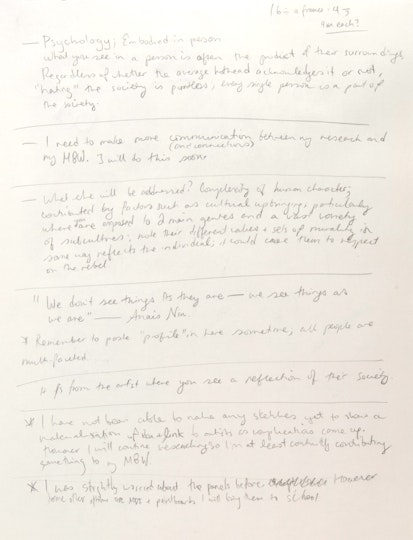 — Psychology; Embodied in person
what you see in a person is often the product of their surroundings
Regardless of whether the average hothead acknowledges it or not,
"hating" the society is pointless; every single person is a part of
the society.
— I need to make more communication between my research and
(and connections)
my MBW. I will do this soon.
— What else will be addressed? Complexity of human character;
contributed by factors such as cultural upbringing, particularly
exposed to 2 main genres and a vast variety
of subcultures; note their different values + sets of morality in
some way reflects the individual; it could cause them to
on the rebel"
"We don't see things As they are — we see things as
we are" — Anais Nin
* Remember to paste "profile" in here sometime; all people are
multi faceted
from the artist where you see a reflection of their society.
* I have not been able to make any sketches yet to show a
materialisation of idea & link to artists as complications came up.
However I will continue researching so I'm at least constantly contributing
something to my MBW.
* I was slightly worried about the panels before. However
I will buy them to school